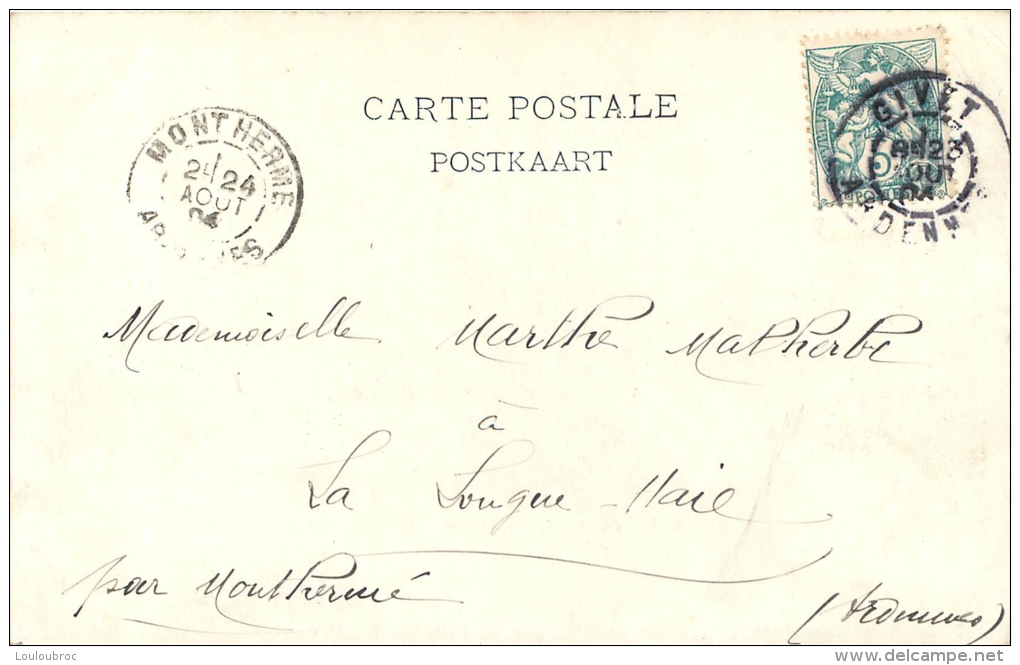 CARTE POSTALE
POSTKAART
MONTHERME
24
AOUT
04
GIVET
23
AOUT
04
5
Mademoiselle Marthe Malherbe
à
La Longue-Haie
par Monthermé
(Ardennes)
Louloubroc
www.delcampe.net